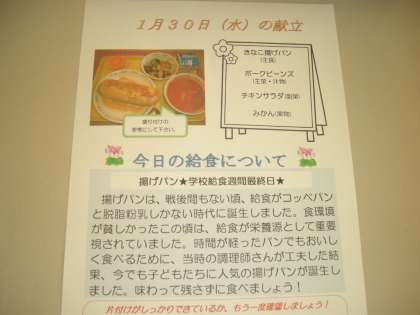 1月30日（水）の献立
きなこ揚げパン
（主食）
ポークビーンズ
（主菜・汁物）
チキンサラダ（副菜）
みかん（果物）
盛り付けの
参考にして下さい。
今日の給食について
揚げパン★学校給食週間最終日★
揚げパンは、戦後間もない頃、給食がコッペパン
と脱脂粉乳しかない時代に誕生しました。食環境
が貧しかったこの頃は、給食が栄養源として重要
視されていました。時間が経ったパンでもおいし
く食べるために、当時の調理師さんが工夫した結
果、今でも子どもたちに人気の揚げパンが誕生し
ました。味わって残さずに食べましょう！
片付けがしっかりできているか、もう一度確認しましょう！